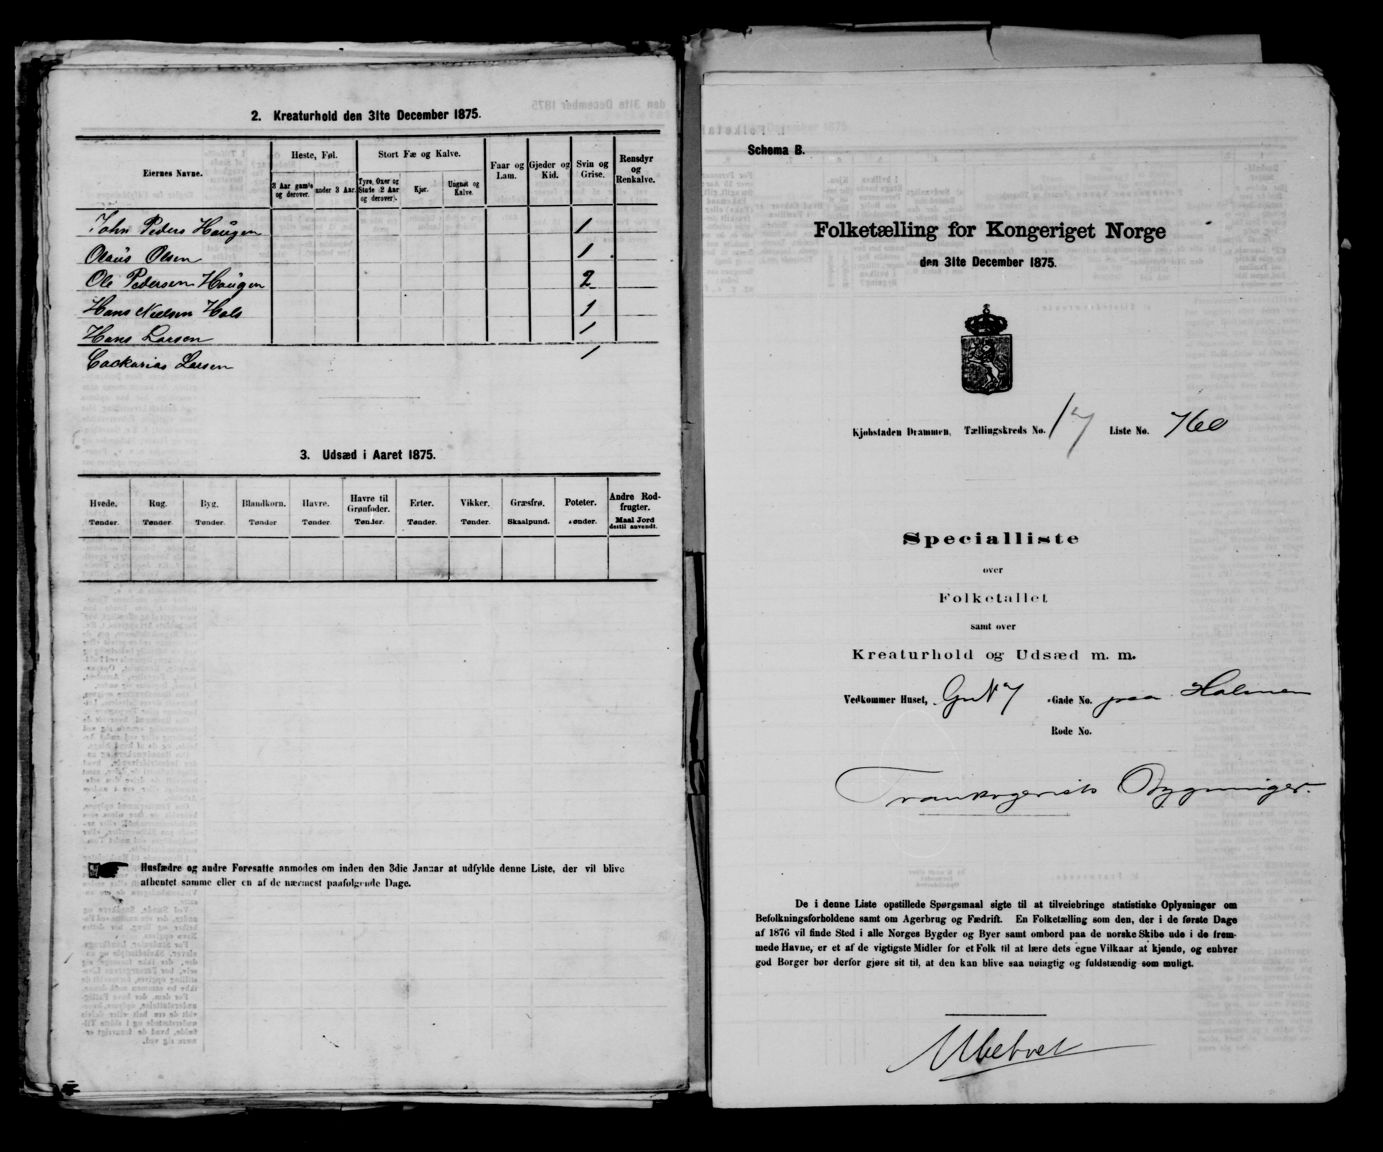 2. Kreaturhold den 31te December 1875.
Eiernes Navne.
Heste, Føl.
Stort Fæ og Kalve.
Faar og Lam.
Gjeder og Kid.
Svin og Grise.
Rensdyr og Renkalve.
3 Aar gamle og derover.
under 3 Aar.
Tyre, Oxer og Stude 2 Aar og derover.
Kjør.
Ungnøt og Kalve.
John Peders Haugen 1
Olaus Olsen 1
Ole Pedersen Haugen 2
Hans Nielsen Hals 1
Hans Larsen 1
Zackarias Larsen 1
3. Udsæd i Aaret 1875.
Hvede. Rug. Byg. Blandkorn. Havre. Havre til Grønfoder. Erter. Vikker. Græsfrø. Poteter. Andre Rodfrugter.
Tønder. Tønder. Tønder. Tønder Tønder. Tønder. Tønder. Tønder. Skaalpund. Tønder. Maal Jord dertil anvendt.
Husfædre og andre Foresatte anmodes om inden den 3die Januar at udfylde denne Liste, der vil blive
afhentet samme eller en af de nærmest paafølgende Dage.
Schema B.
Folketælling for Kongeriget Norge
den 31te December 1875.
Kjøbstaden Drammen, Tællingskreds No. 17 Liste No. 760
Specialliste
over
Folketallet
samt over
Kreaturhold og Udsæd m. m.
Vedkommer Huset, GrN 7 -Gade No. paa Holmen
Rode No.
Bygninger.
De i denne Liste opstillede Spørgsmaal sigte til at tilveiebringe statistiske Oplysninger om
Befolkningsforholdene samt om Agerbrug og Fædrift. En Folketælling som den, der i de første Dage
af 1876 vil finde Sted i alle Norges Bygder og Byer samt ombord paa de norske Skibe ude i de frem-
mede Havne, er et af de vigtigste Midler for et Folk til at lære dets egne Vilkaar at kjende, og enhver
god Borger bør derfor gjøre sit til, at den kan blive saa nøiagtig og fuldstændig som muligt.
Ubeboet